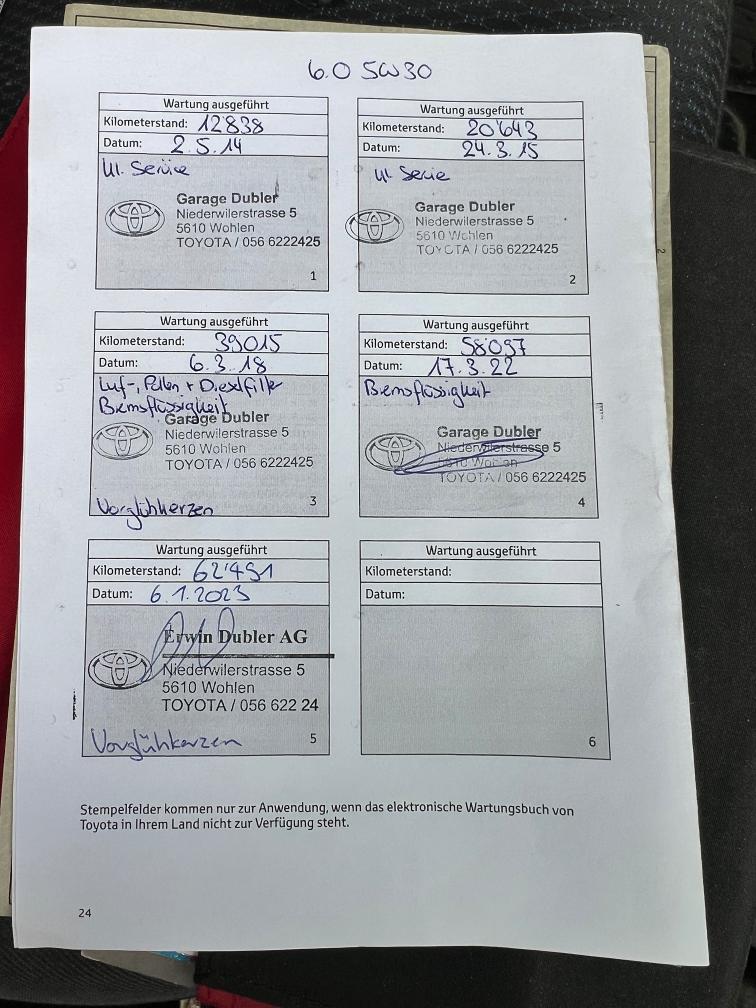 6.0 5W30
Wartung ausgeführt
Kilometerstand: 12838
Datum: 2.5.14
Garage Dubler
Niederwilerstrasse 5
5610 Wohlen
TOYOTA / 056 6222425
1
Wartung ausgeführt
Kilometerstand: 20'643
Datum: 24.3.15
Garage Dubler
Niederwilerstrasse 5
5610 Wohlen
TOYOTA / 056 6222425
2
Wartung ausgeführt
Kilometerstand: 39015
Datum: 6.3.18
Luf-, Pollen + Dieselfilter
Bremsflüssigkeit
Garage Dubler
Niederwilerstrasse 5
5610 Wohlen
TOYOTA / 056 6222425
Vorglühkerzen
3
Wartung ausgeführt
Kilometerstand: 58'097
Datum: 17.3.22
Bremsflüssigkeit
Garage Dubler
Niederwilerstrasse 5
5610 Wohlen
TOYOTA / 056 6222425
4
Wartung ausgeführt
Kilometerstand: 62'491
Datum: 6.1.2023
Erwin Dubler AG
Niederwilerstrasse 5
5610 Wohlen
TOYOTA / 056 622 24
Vorglühkerzen
5
Wartung ausgeführt
Kilometerstand:
Datum:
6
Stempelfelder kommen nur zur Anwendung, wenn das elektronische Wartungsbuch von
Toyota in Ihrem Land nicht zur Verfügung steht.
24